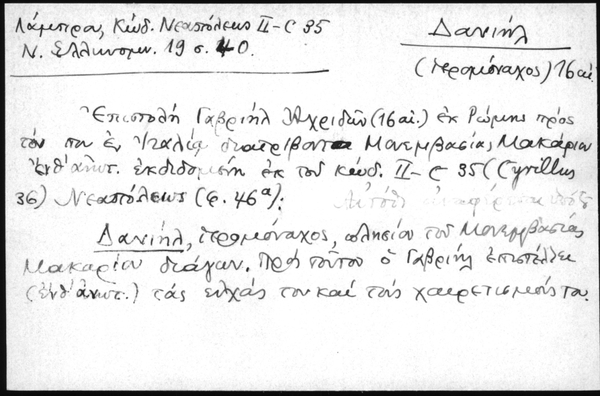 Λάμπρος, Κώδ. Νεαπόλεως ΙΙ-C 35
Ν. Ελληνομν. 19 σ. 40.
Δανιήλ
(ἱερομόναχος) 16 αἰ.
Ἐπιστολή Γαβριήλ Ἀχριδῶν (16 αἰ.) ἐκ Ρώμης πρός
τόν που ἐν Ἰταλίᾳ διατρίβοντα Μονεμβασίας Μακάριον
Ἐνθ' ἀνωτ. ἐκδιδομένη ἐκ τοῦ κώδ. ΙΙ-C 35 (Cyrillus
36) Νεαπόλεως (φ. 46α): Αὐτόθι ἀναφέρεται
Δανιήλ, ἱερομόναχος, πλησίον τοῦ Μονεμβασίας
Μακαρίου διάγων. Πρός τοῦτον ὁ Γαβριήλ ἐπιστέλλει
(ἐνθ' ἀνωτ.) τάς εὐχάς του καί τούς χαιρετισμούς του.